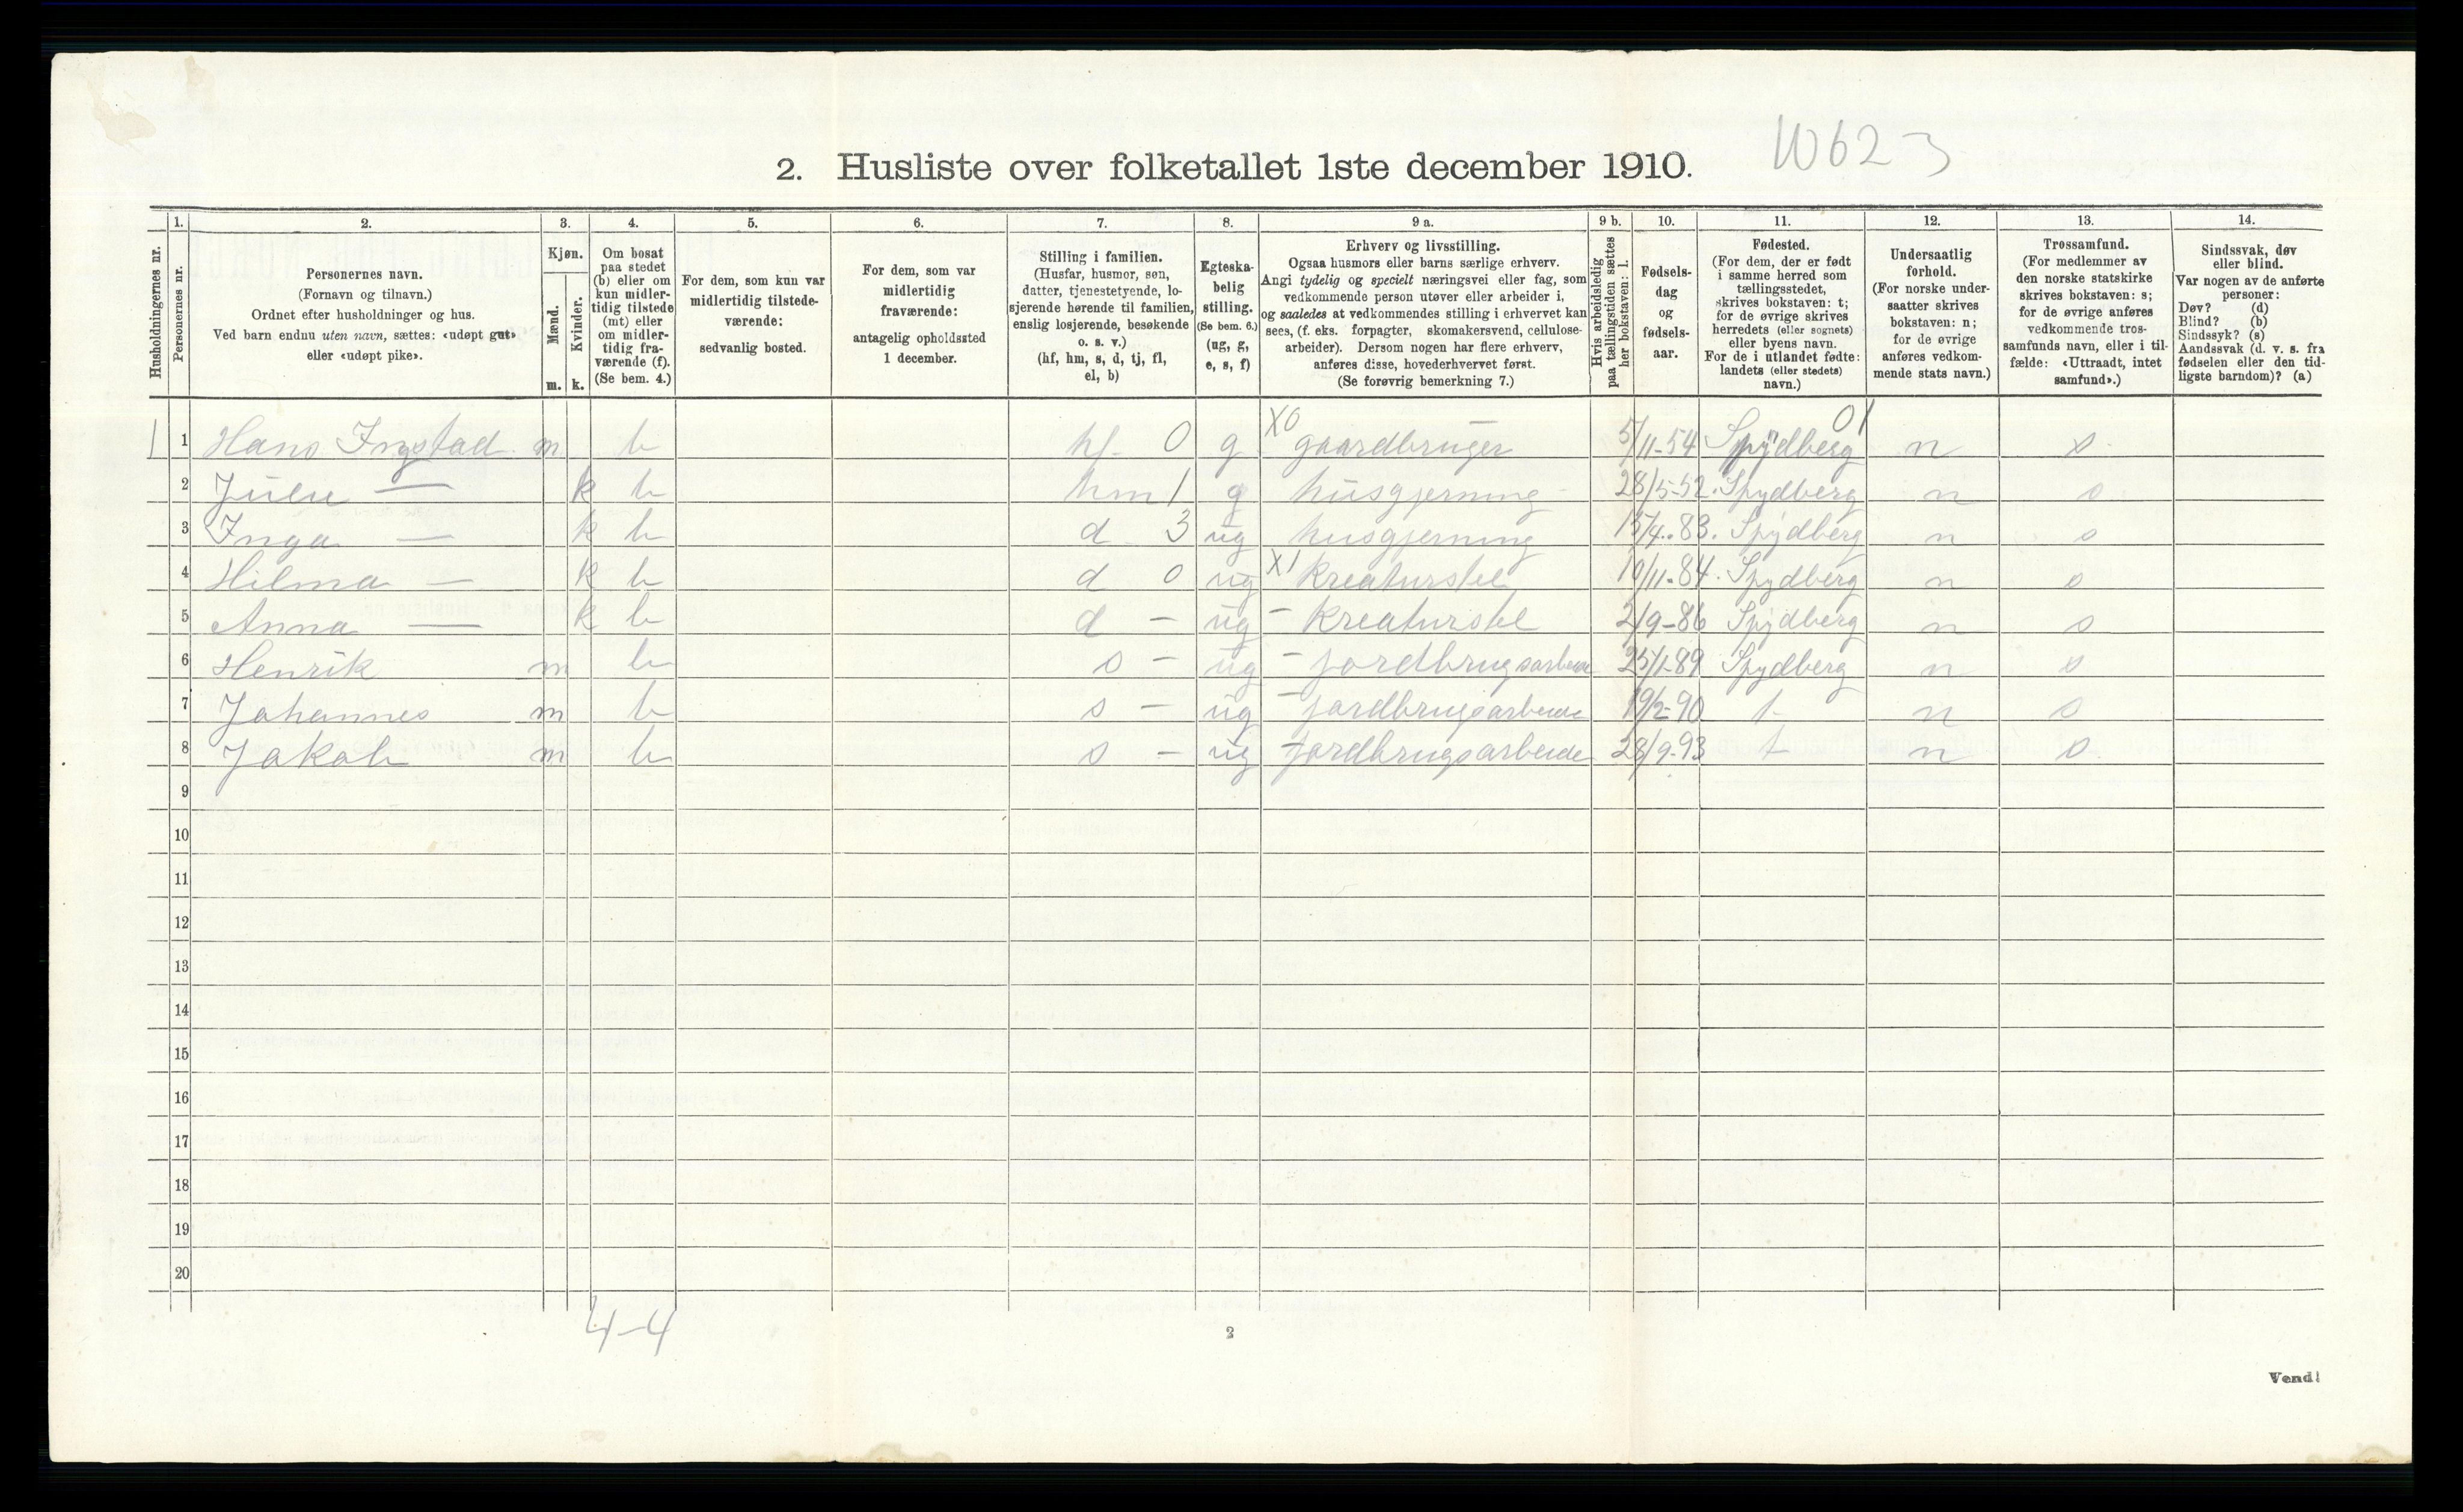 10623
2. Husliste over folketallet 1ste december 1910.
Husholdningernes nr.
1. Personernes nr.
2. Personernes navn. (Fornavn og tilnavn.) Ordnet efter husholdninger og hus. Ved barn endnu uten navn, sættes: «udøpt gut» eller «udøpt pike».
3. Kjøn. Mænd. m. Kvinder. k.
4. Om bosat paa stedet (b) eller om kun midlertidig tilstede (mt) eller om midlertidig fraværende (f). (Se bem. 4.)
5. For dem, som kun var midlertidig tilstedeværende: sedvanlig bosted.
6. For dem, som var midlertidig fraværende: antagelig opholdssted 1 december.
7. Stilling i familien. (Husfar, husmor, søn, datter, tjenestetyende, losjerende hørende til familien, enslig losjerende, besøkende o. s. v.) (hf, hm, s, d, tj, fl, el, b)
8. Egteskabelig stilling. (Se bem. 6.) (ug, g, e, s, f)
9 a. Erhverv og livsstilling. Ogsaa husmors eller barns særlige erhverv. Angi tydelig og specielt næringsvei eller fag, som vedkommende person utøver eller arbeider i, og saaledes at vedkommendes stilling i erhvervet kan sees, (f. eks. forpagter, skomakersvend, cellulosearbeider). Dersom nogen har flere erhverv, anføres disse, hovederhvervet først. (Se forøvrig bemerkning 7.)
9 b. Hvis arbeidsledig paa tællingstiden sættes her bokstaven: l.
10. Fødselsdag og fødselsaar.
11. Fødested. (For dem, der er født i samme herred som tællingsstedet, skrives bokstaven: t; for de øvrige skrives herredets (eller sognets) eller byens navn. For de i utlandet fødte: landets (eller stedets) navn.)
12. Undersaatlig forhold. (For norske undersaatter skrives bokstaven: n; for de øvrige anføres vedkommende stats navn.)
13. Trossamfund. (For medlemmer av den norske statskirke skrives bokstaven: s; for de øvrige anføres vedkommende trossamfunds navn, eller i tilfælde: «Uttraadt, intet samfund».)
14. Sindssvak, døv eller blind. Var nogen av de anførte personer: Døv? (d) Blind? (b) Sindssyk? (s) Aandssvak (d. v. s. fra fødselen eller den tidligste barndom)? (a)
1 1 Hans Ingstad m b hf. 0 g X0 gaardbruger 5/11-54 Spydberg 01 n s
2 Julie — k b hm 1 g husgjerning 28/5-52. Spydberg n s
3 Inga — k b d 3 ug husgjerning 15/4-83. Spydberg n s
4 Hilma — k b d 0 ug X1 kreaturstel 10/11-84. Spydberg n s
5 Anna — k b d - ug - kreaturstel 2/9-86 Spydberg n s
6 Henrik m b s - ug - jordbrugsarbeide 25/1-89 Spydberg n s
7 Johannes m b s - ug - jordbrugsarbeide 19/2-90 t n s
8 Jakob m b s - ug - jordbrugsarbeide 28/9-93 t n s
9
10
11
12
13
14
15
16
17
18
19
20
4-4
2
Vend!